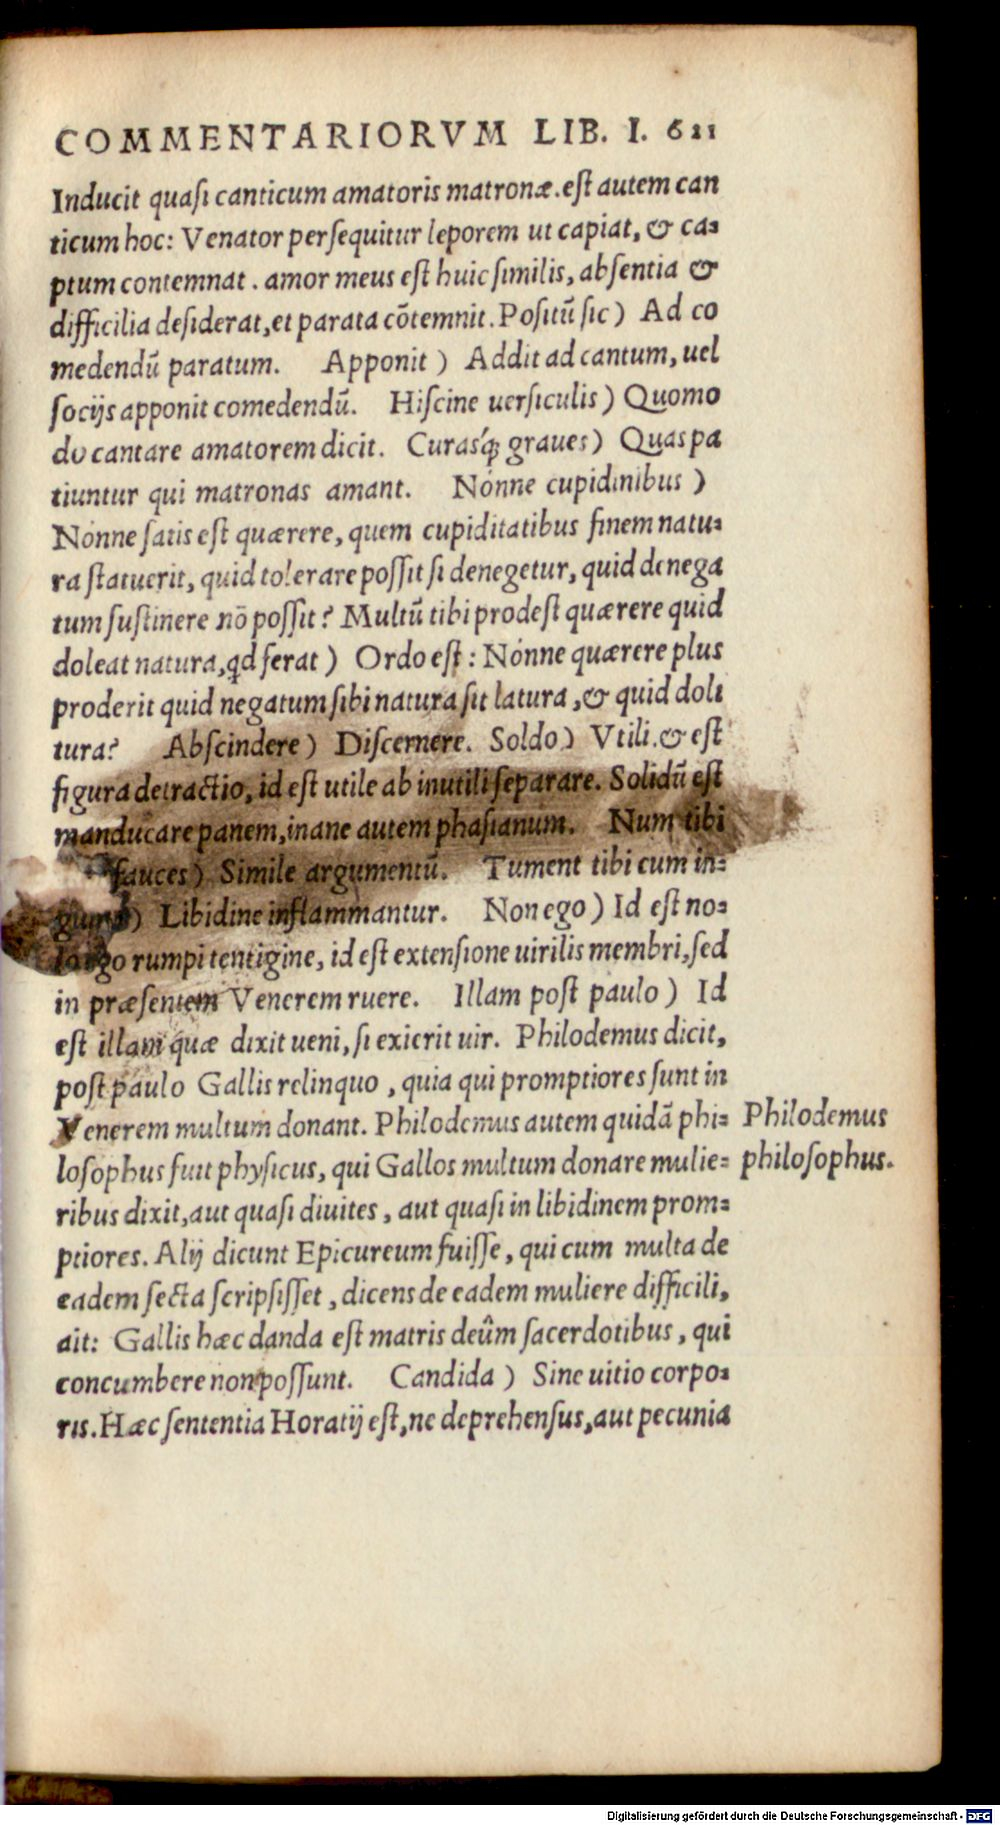 COMMENTARIORVM LIB. I. 611
Inducit quaſi canticum amatoris matronæ.eſt autem can
ticum hoc: Venator perſequitur leporem ut capiat, & ca⸗
ptum contemnat. amor meus eſt huic ſimilis, abſentia &
difficilia deſiderat,et parata cõtemnit. Poſitũ ſic) Ad co
medendũ paratum. Apponit) Addit ad cantum, uel
ſocijs apponit comedendũ. Hiſcine uerſiculis) Quomo
do cantare amatorem dicit. Curasq́; graues) Quas pa
tiuntur qui matronas amant. Nónne cupidinibus)
Nónne ſatis eſt quærere, quem cupiditatibus finem natu⸗
ra ſtatuerit, quid tolerare poſſit ſi denegetur, quid denega
tum ſuſtinere nõ poſſit? Multũ tibi prodeſt quærere quid
doleat natura,qd ferat) Ordo eſt: Nónne quærere plus
proderit quid negatum ſibi natura ſit latura, & quid doli
tura? Abſcindere) Diſcernere. Soldo) Vtili.& eſt
figura detractio, id eſt utile ab inutili ſeparare. Solidũ eſt
manducare panem, inane autem phaſianum. Num tibi
fauces) Simile argumentũ. Tument tibi cum in⸗
guina) Libidine inflammantur. Non ego) Id eſt no⸗
lo ego rumpi tentigine, id eſt extenſione uirilis membri,ſed
in præſentem Venerem ruere. Illam poſt paulo) Id
eſt illam quæ dixit ueni, ſi exierit uir. Philodemus dicit,
poſt paulo Gallis relinquo, quia qui promptiores ſunt in
Venerem multum donant. Philodemus autem quidã phi⸗
loſophus fuit phyſicus, qui Gallos multum donare mulie⸗
ribus dixit,aut quaſi diuites, aut quaſi in libidinem prom⸗
ptiores. Alij dicunt Epicureum fuiſſe, qui cum multa de
eadem ſecta ſcripſiſſet, dicens de eadem muliere difficili,
ait: Gallis hæc danda eſt matris deûm ſacerdotibus, qui
concumbere non poſſunt. Candida) Sine uitio corpo⸗
ris. Hæc ſententia Horatij eſt,ne deprehenſus,aut pecunia
Philodemus
philoſophus.
Digitalisierung gefördert durch die Deutsche Forschungsgemeinschaft - DFG